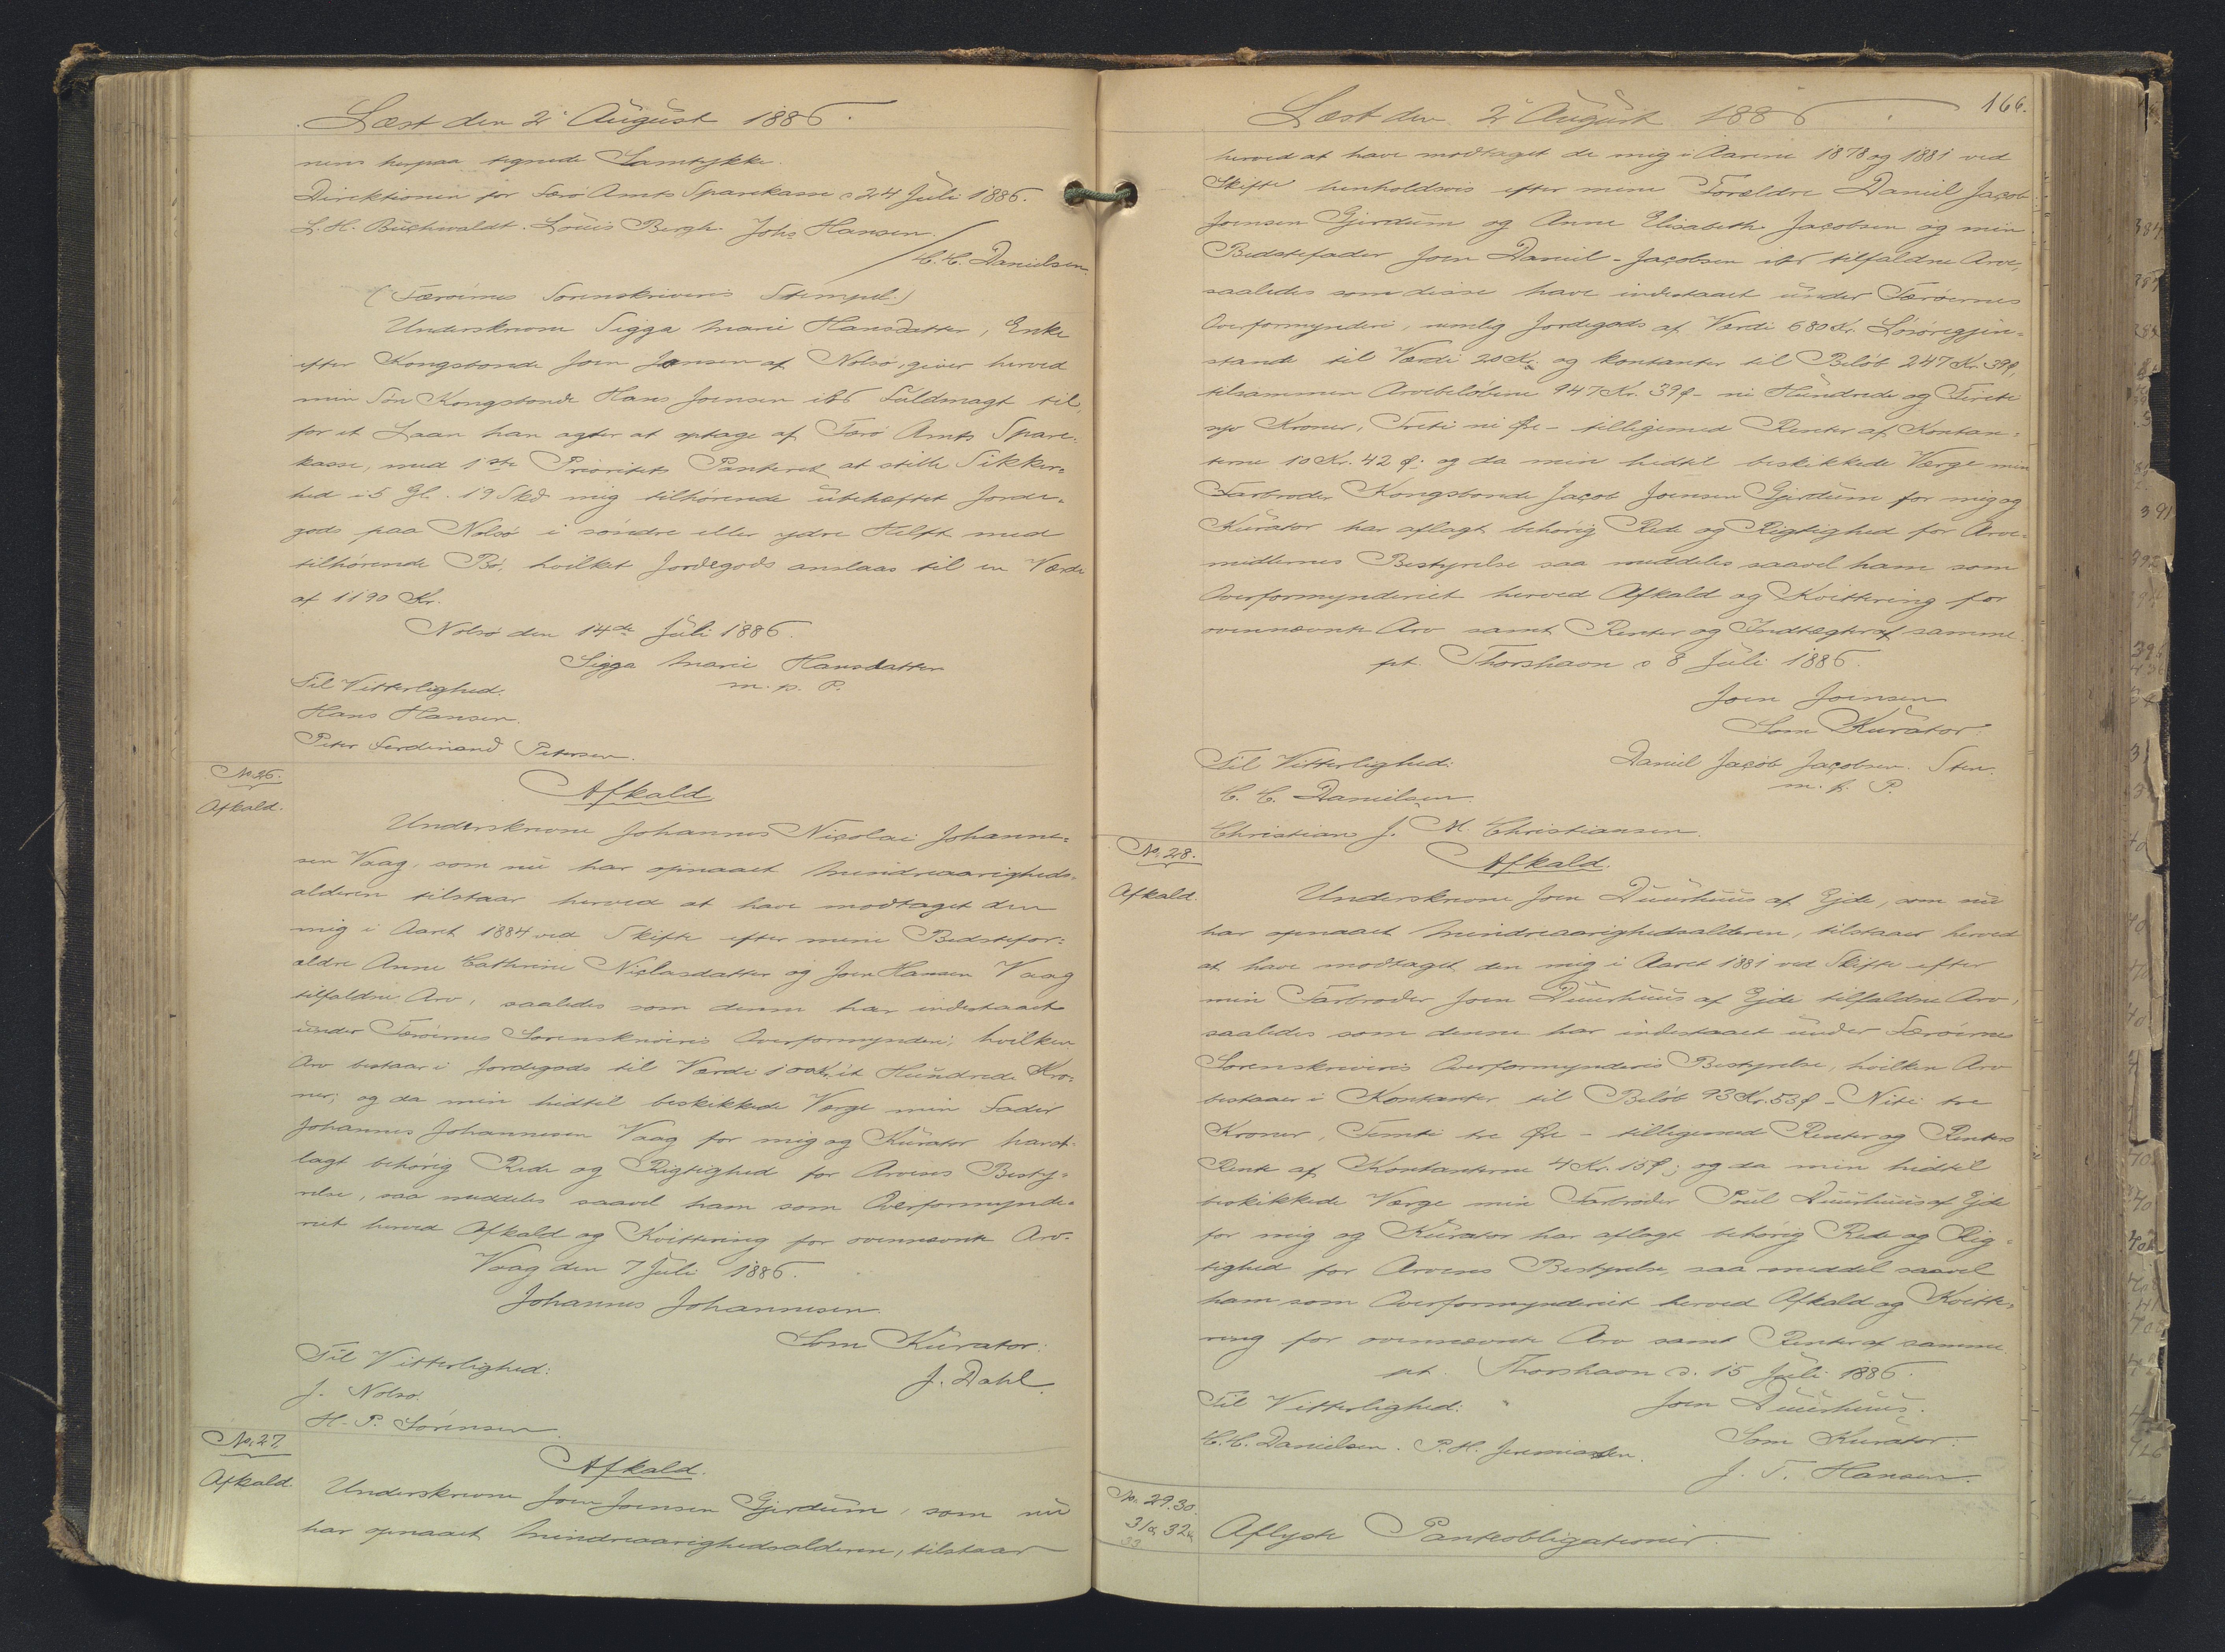 Læst den 2' August 1886.
nens herpaa tegnede Samtykke.
Direktionen for Færø Amts Sparekasse d 24 Juli 1886.
L. H. Buchwaldt. Louis Bergh. Johs Hansen.
/ C. C. Danielsen.
(Færøernes Sorenskriveris Stempel.)
Underskrevne Sigga Marie Hansdatter, Enke
efter Kongsbonde Joen Jensen af Nolsø, giver herved
min Søn Kongsbonde Hans Joensen ibd Fuldmagt til,
for et Laan han agter at optage af Færø Amts Spare-
kasse, med 1ste Prioritets Panteret at stille Sikker-
hed i 5 Gl. 19 Skd mig tilhørende ubehæftet Jorde-
gods paa Nolsø i søndre eller ydre Helft med
tilhørende Bø, hvilket Jordegods anslaas til en Værdi
af 1190 Kr.
Nolsø den 14de Juli 1886.
Sigga Marie Hansdatter
m. p. P.
Til Vitterlighed:
Hans Hansen.
Peter Ferdinand Petersen.
No. 26.
Afkald.
Afkald
Underskrevne Johannes Nicolai Johanne-
sen Vaag, som nu har opnaaet Mindreaarigheds-
alderen tilstaar herved at have modtaget den
mig i Aaret 1884 ved Skifte efter mine Bedstefor-
ældre Anne Cathrine Niclasdatter og Joen Hansen Vaag
tilfaldne Arv, saaledes som denne har indestaaet
under Færøernes Sorenskriveris Overformynderi; hvilken
Arv bestaar i Jordegods til Værdi 100 Kr, et Hundrede Kro-
ner; og da min hidtil beskikkede Værge min Fader
Johannes Johannesen Vaag for mig og Kurator har af-
lagt behørig Rede og Rigtighed for Arvens Besty-
relse, saa meddeles saavel ham som Overformynde-
riet herved Afkald og Kvittering for ovennævnte Arv.
Vaag den 7 Juli 1886.
Johannes Johannesen.
Som Kurator:
J. Dahl.
Til Vitterlighed:
J. Nolsø.
H. P. Sørensen.
No. 27.
Afkald.
Afkald.
Underskrevne Joen Joensen Gjerdum, som nu
har opnaaet Mindreaarighedsalderen, tilstaar
Læst den 2' August 1886.
166.
herved at have modtaget de mig i Aarene 1878 og 1881 ved
Skifte henholdsvis efter mine Forældre Daniel Jacob
Joensen Gjerdum og Anne Elisabeth Jacobsen og min
Bedstefader Joen Daniel-Jacobsen ibd tilfaldne Arve,
saaledes som disse have indestaaet under Færøernes
Overformynderi, nemlig Jordegods af Værdi 680 Kr. Løsøregjen-
stande til Værdi 20 Kr. og kontanter til Beløb 247 Kr. 39 ø,
tilsammen Arvebeløbene 947 Kr. 39 ø - ni Hundrede og Fireti
syv Kroner, Treti ni Øre - tilligemed Renter af Kontan-
terne 10 Kr. 42 ø; og da min hidtil beskikkede Værge min
Farbroder Kongsbonde Jacob Joensen Gjerdum for mig og
Kurator har aflagt behørig Rede og Rigtighed for Arve-
midlernes Bestyrelse saa meddeles saavel ham som
Overformynderiet herved Afkald og Kvittering for
ovennævnte Arv samt Renter og Indtægter af samme.
pt. Thorshavn d 8 Juli 1886.
Joen Joensen
Som Kurator:
Daniel Jacob Jacobsen. Sten.
m. p. P.
Til Vitterlighed:
C. C. Danielsen.
Christian J. M. Christiansen.
No. 28.
Afkald.
Afkald.
Underskrevne Joen Duurhuus af Ejde, som nu
har opnaaet Mindreaarighedsalderen, tilstaaer herved
at have modtaget den mig i Aaret 1881 ved Skifte efter
min Farbroder Joen Duurhuus af Ejde tilfaldne Arv,
saaledes som denne har indestaaet under Færøernes
Sorenskriveris Overformynderis Bestyrelse, hvilken Arv
bestaaer i Kontanter til Beløb 93 Kr. 53 ø - Niti tre
Kroner, Femti tre Øre - tilligemed Renter og Renters
Rente af Kontanterne 4 Kr. 15 ø; og da min hidtil
beskikkede Værge min Farbroder Poul Duurhuus af Ejde
for mig og Kurator har aflagt behørig Rede og Rig-
tighed for Arvens Bestyrelse, saa meddel saavel
ham som Overformynderiet herved Afkald og Kvitte-
ring for ovennævnte Arv samt Renter af samme.
pt Thorshavn d. 15 Juli 1886.
Til Vitterlighed:
Joen Duurhuus.
C. C. Danielsen. P. H. Jeremiassen.
Som Kurator:
J. T. Hansen.
No. 29. 30.
31 & 32
33
Aflyste Panteobligationer.